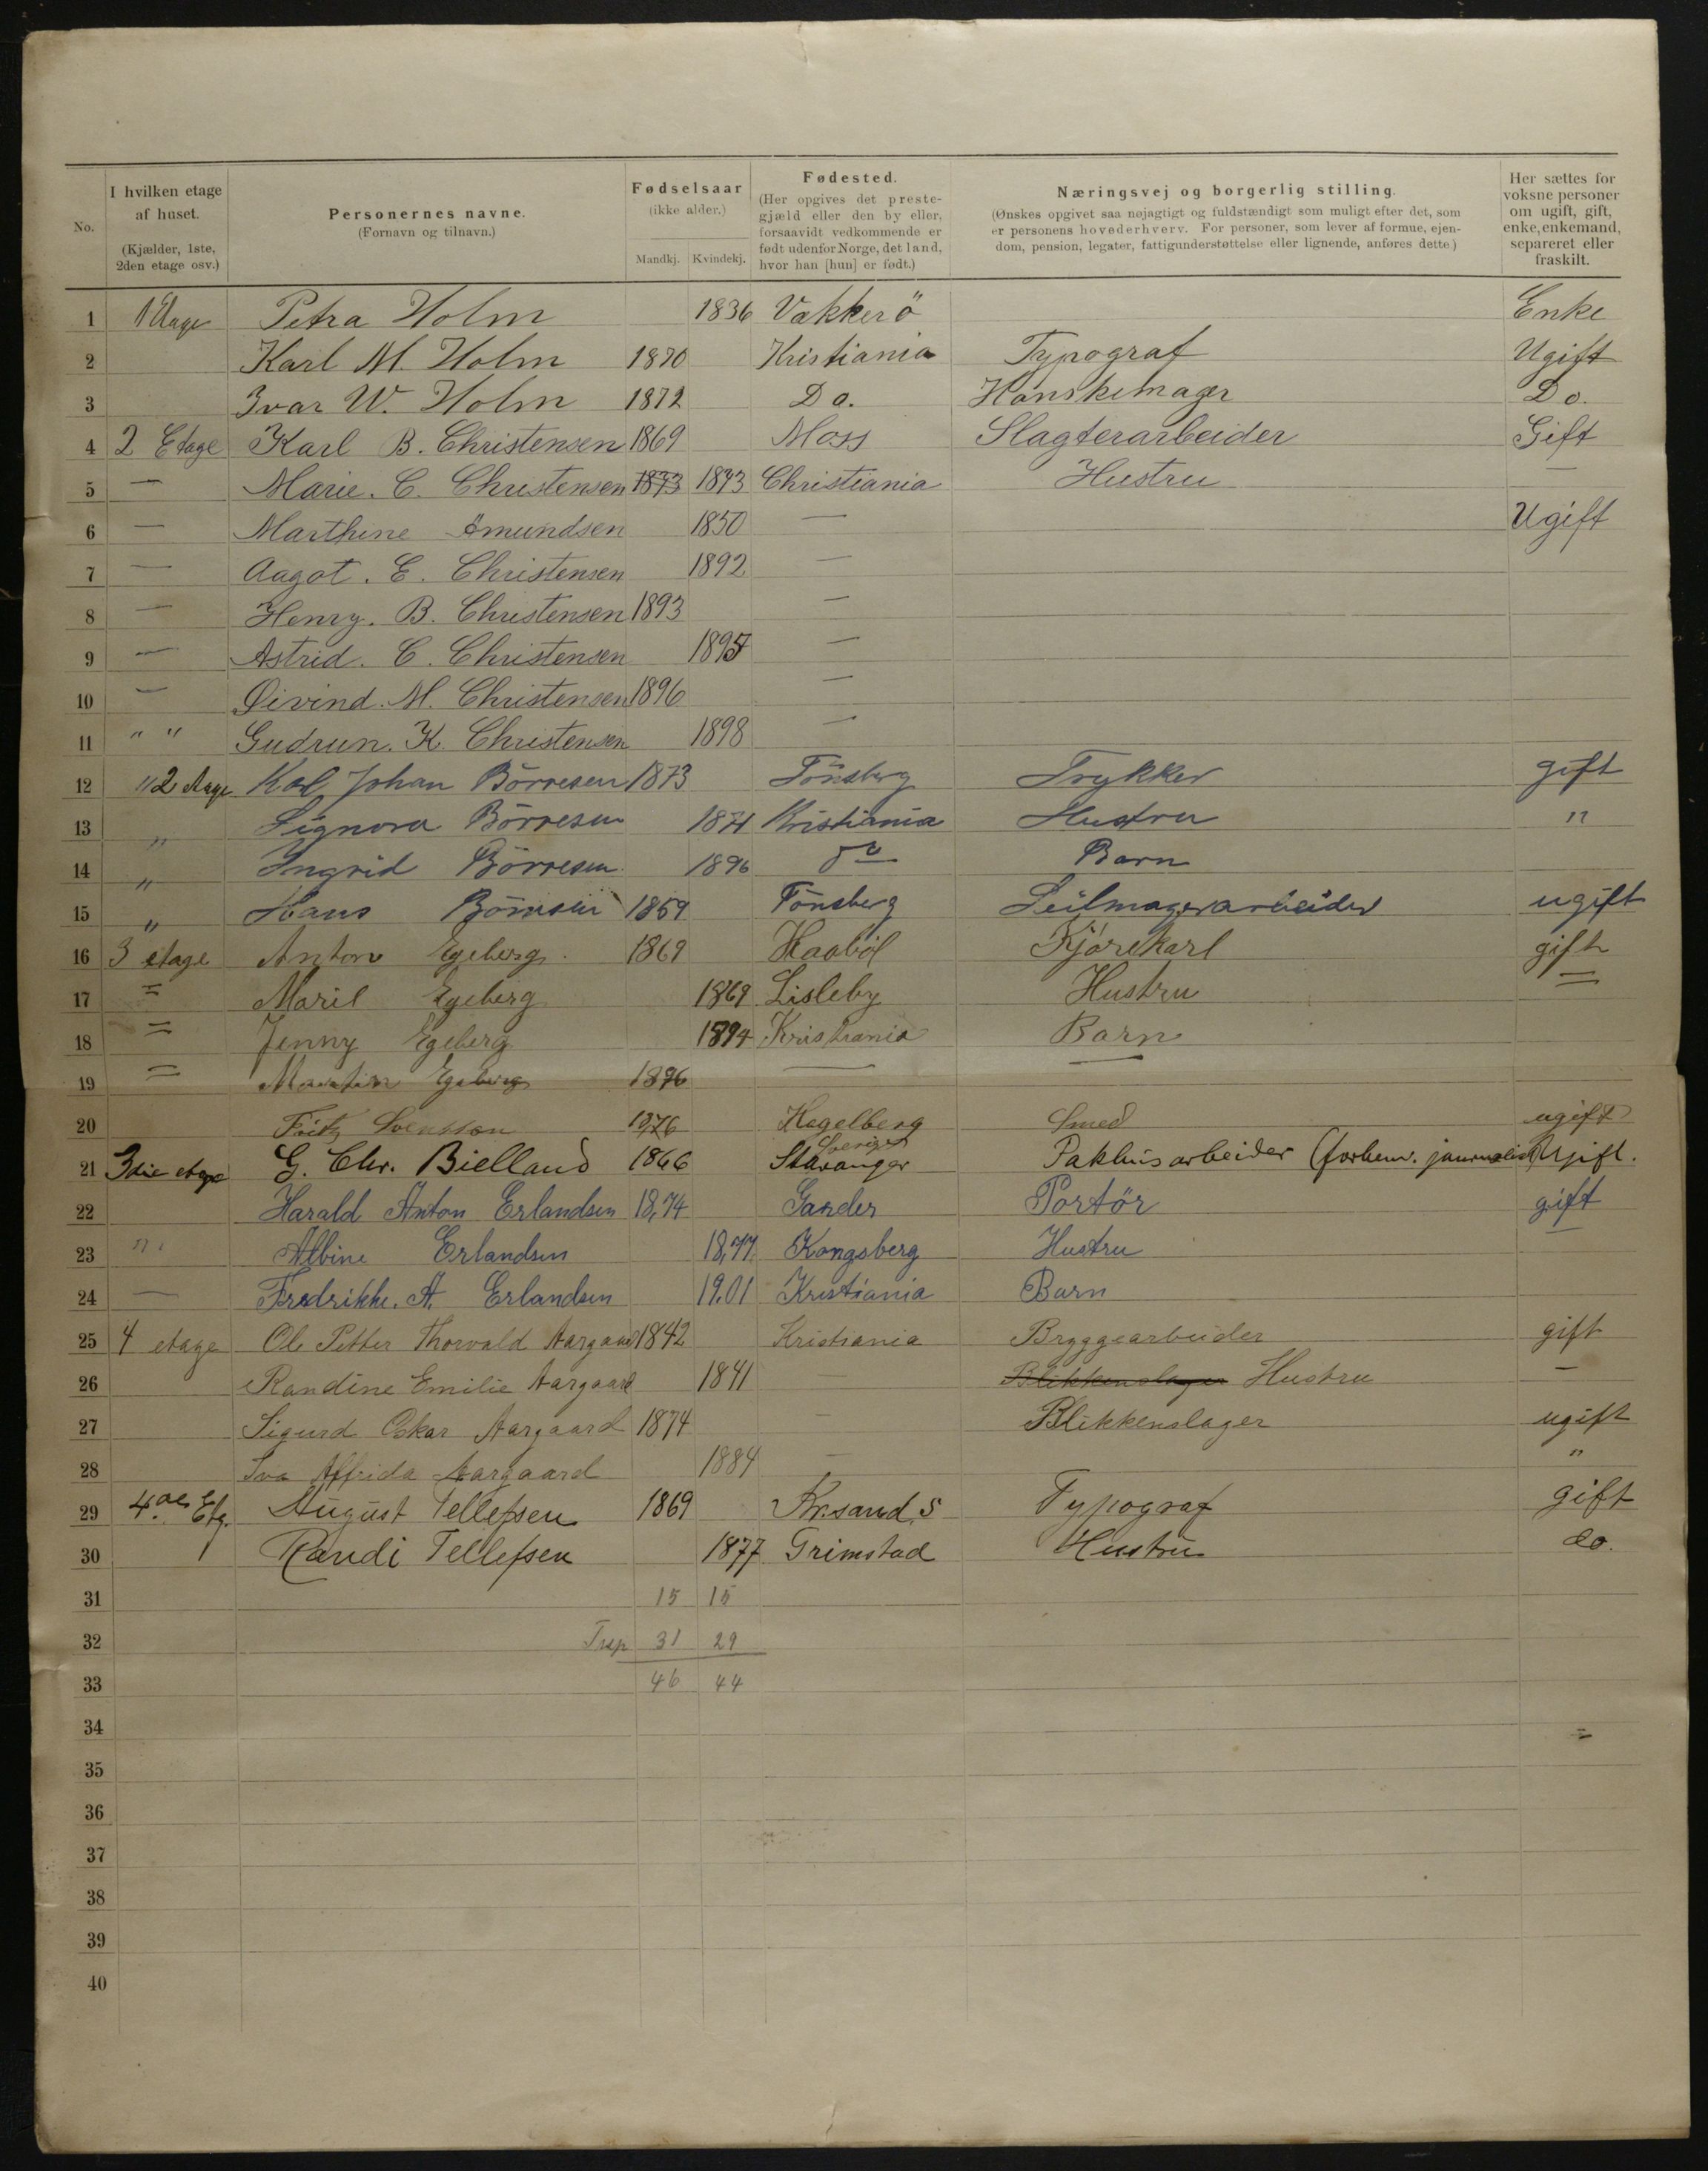 No.
I hvilken etage af huset.
(Kjælder, 1ste, 2den etage osv.)
Personernes navne.
(Fornavn og tilnavn.)
Fødselsaar
(ikke alder.)
Mandkj. Kvindekj.
Fødested.
(Her opgives det prestegjæld eller den by eller, forsaavidt vedkommende er født udenfor Norge, det land, hvor han [hun] er født.)
Næringsvej og borgerlig stilling.
(Ønskes opgivet saa nøjagtigt og fuldstændigt som muligt efter det, som er personens hovederhverv. For personer, som lever af formue, ejendom, pension, legater, fattigunderstøttelse eller lignende, anføres dette.)
Her sættes for voksne personer om ugift, gift, enke, enkemand, separeret eller fraskilt.
1 1 Etage Petra Holm 1836 Vækkerö Enke
2 Karl M. Holm 1870 Kristiania Typograf Ugift
3 Ivar W. Holm 1872 Do. Hanskemager Do.
4 2 Etage Karl B. Christensen 1869 Moss Slagterarbeider Gift
5 — Marie. C. Christensen 1873 1873 Christiania Hustru —
6 — Marthine Amundsen 1850 — Ugift
7 — Aagot. E. Christensen 1892 —
8 — Henry. B. Christensen 1893 —
9 — Astrid. C. Christensen 1895 —
10 — Øivind. M. Christensen 1896 —
11 " " Gudrun. K. Christensen 1898 —
12 " 2 Etage Karl Johan Börresen 1873 Tönsberg Trykker gift
13 " Signora Börresen 1871 Kristiania Hustru "
14 " Ingrid Börresen 1896 do Barn
15 " Hans Börresen 1859 Tönsberg Seilmagerarbeider ugift
16 3 etage Anton Egeberg. 1869 Haaböl Kjörekarl gift
17 = Maril Egeberg 1869 Lisleby Hustru =
18 = Jenny Egeberg 1894 Kristiania Barn
19 = Martin Egeberg 1896 — —
20 Fritz Svensson 1876 Hagelberg Sverige Smed ugift
21 3die etage G. Chr. Bielland 1866 Stavanger Pakhusarbeider (forhenv. journalist) Ugift.
22 Harald Anton Erlandsen 1874 Gander Portör gift
23 " Albine Erlandsen 1877 Kongsberg Hustru —
24 — Fredrikke. A. Erlandsen 1901 Kristiania Barn
25 4 etage Ole Petter Thorvald Aargaard 1842 Kristiania Bryggearbeider gift
26 Randine Emilie Aargaard 1841 — Blikkenslager Hustru —
27 Sigurd Oskar Aargaard 1874 — Blikkenslager ugift
28 Iva Alfrida Aargaard 1884 — "
29 4. Etg. August Tellefsen 1869 Kr.sand S Typograf gift
30 Randi Tellefsen 1877 Grimstad Hustru do.
31 15 15
32 Trsp 31 29
33 46 44
34 =
35
36
37
38
39
40